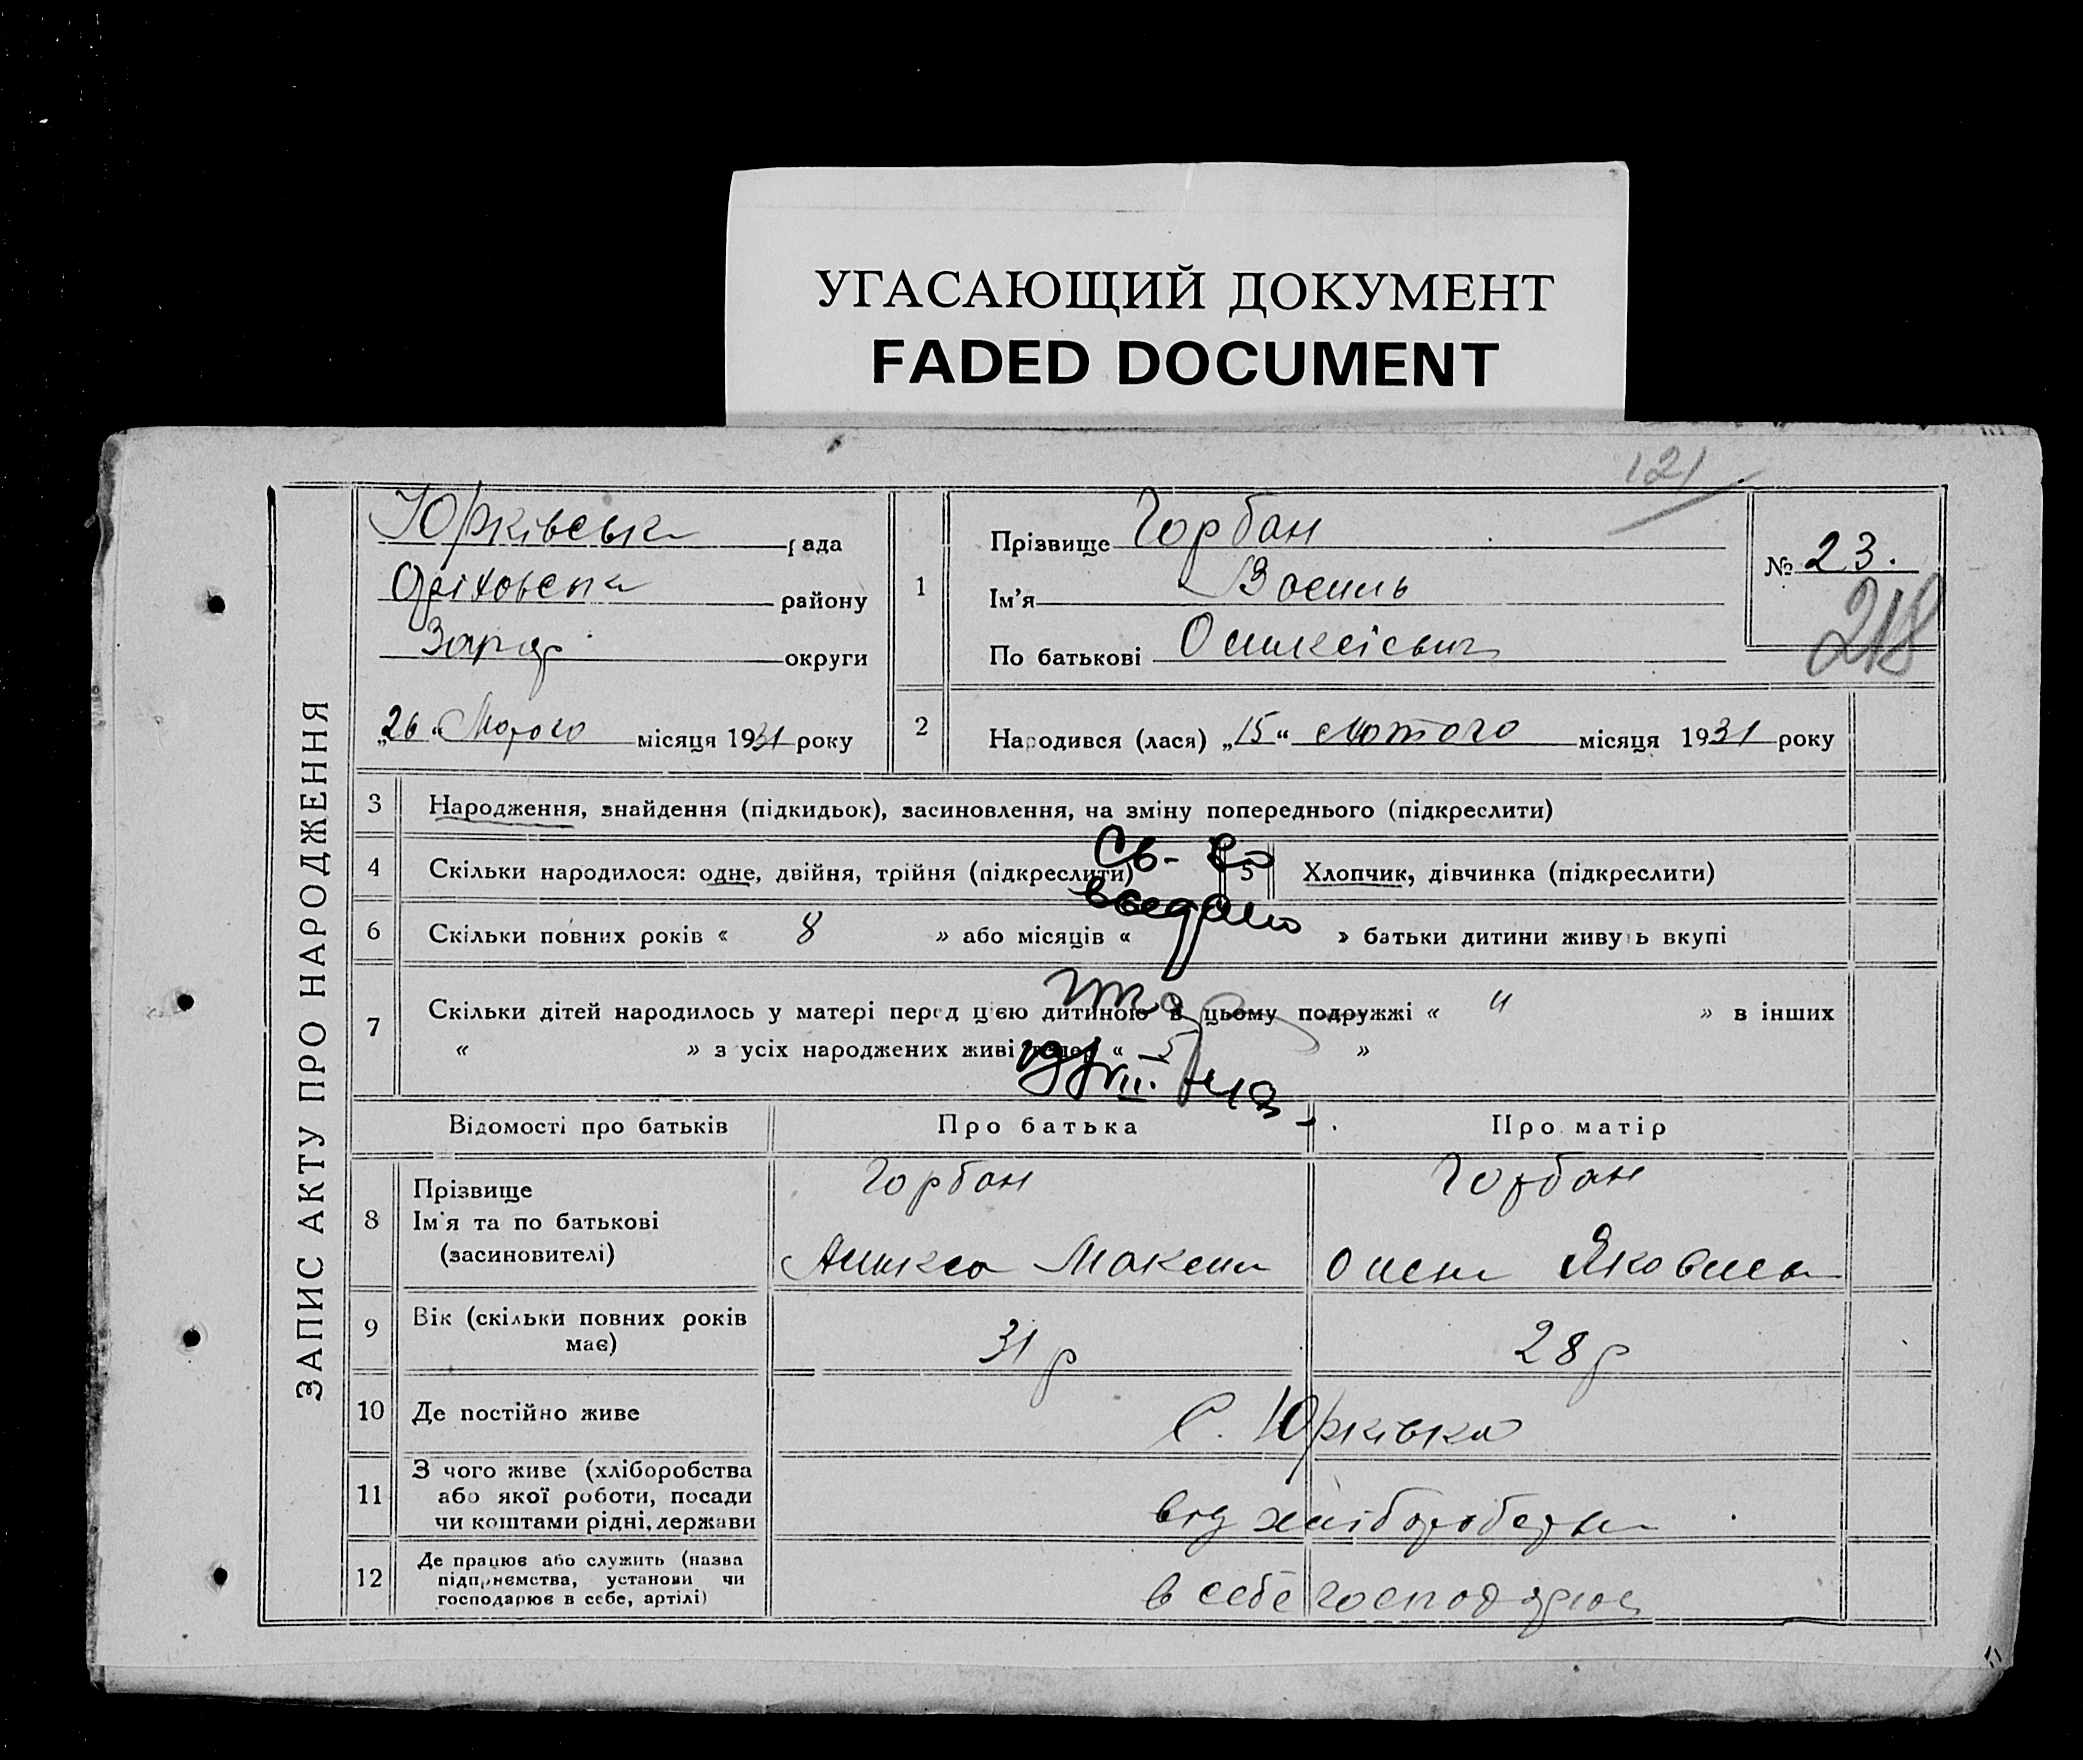 УГАСАЮЩИЙ ДОКУМЕНТ
FADED DOCUMENT
121
ЗАПИС АКТУ ПРО НАРОДЖЕННЯ
Юрківська рада
району
Запор округи
„26" місяця 1931 року
1
Прізвище Горбан
Ім'я Василь
По батькові
№ 23.
218
2
Народився (лася) „15" лютого місяця 1931 року
3 Народження, знайдення (підкидьок), засиновлення, на зміну попереднього (підкреслити)
4 Скільки народилося: одне, двійня, трійня (підкреслити)
5 Хлопчик, дівчинка (підкреслити)
Св-во
6 Скільки повних років « 8 » або місяців « » батьки дитини живуть вкупі
7 Скільки дітей народилось у матері перед цією дитиною в цьому подружжі « 4 » в інших
« » з усіх народжених живі тепер « 5 »
Відомості про батьків Про батька Про матір
8 Прізвище
Ім'я та по батькові
(засиновителі)
Горбан
Максим
Горбан
9 Вік (скільки повних років
має)
31 р
28 р
10 Де постійно живе
С. Юрківка
11 З чого живе (хліборобства
або якої роботи, посади
чи коштами рідні, держави
від
12 Де працює або служить (назва
підприємства, установи чи
господарює в себе, артілі)
в себе